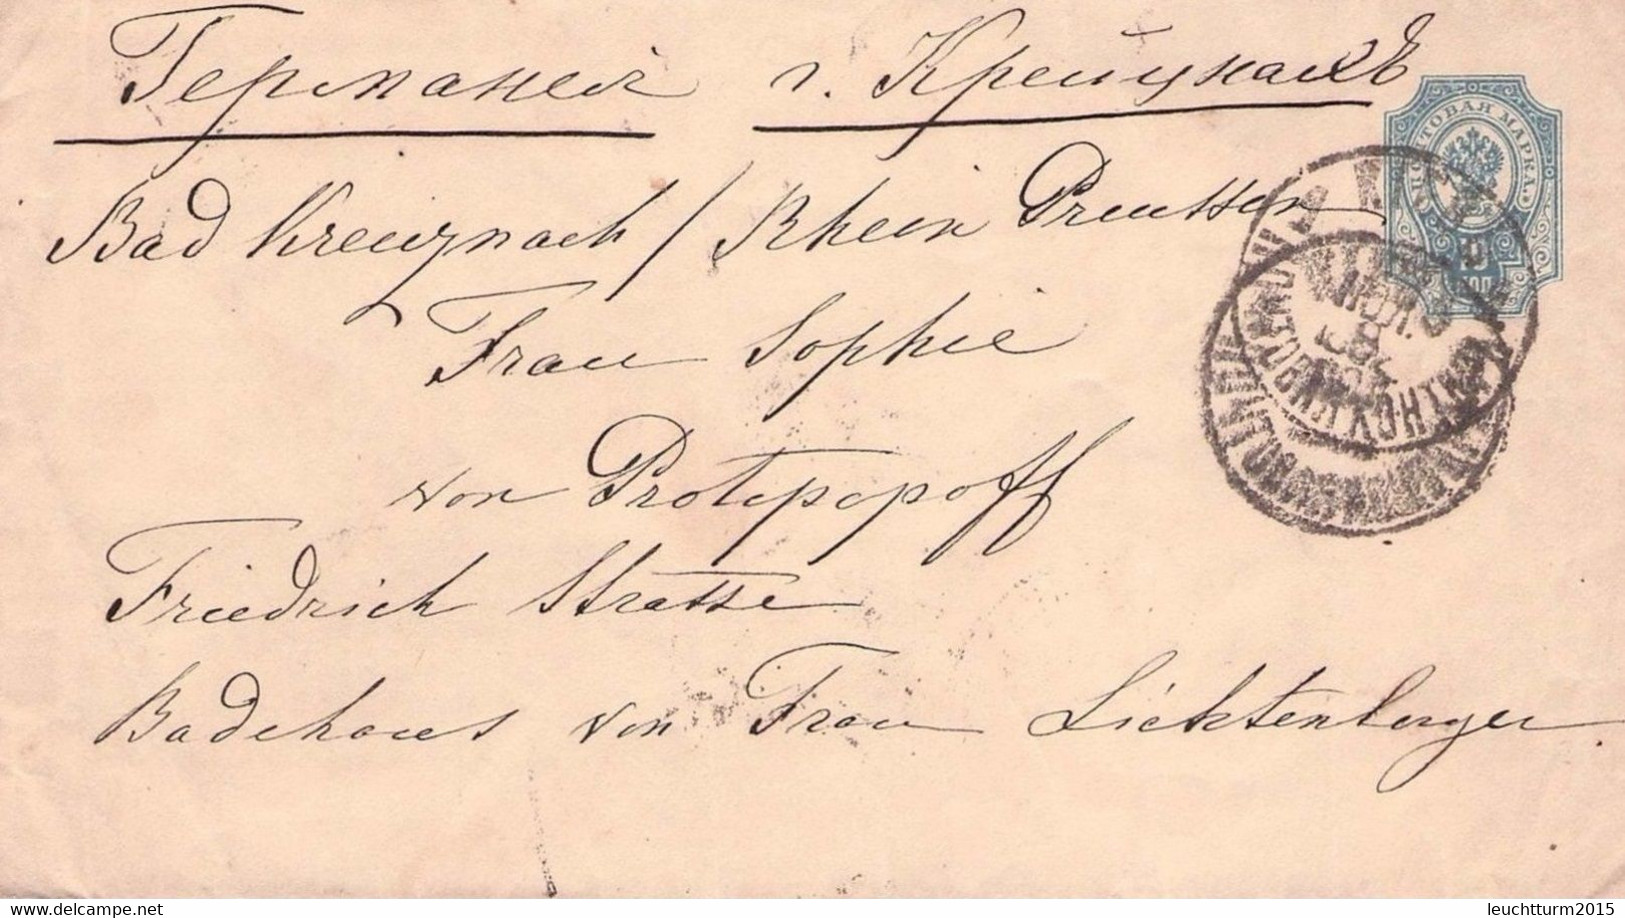 Германия г. Крейцнахъ
Bad Kreuznach / Rhein Preussen
Frau Sophie
von Protopopoff
Friedrich Strasse
Badehaus von Frau Lichtenberger
ПОЧТОВАЯ МАРКА
leuchtturm2015